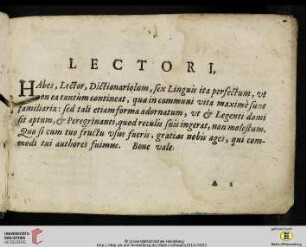 LECTORI.
HAbes, Lector, Dictionariolum, sex Linguis ita perfectum, vt
non ea tantùm contineat, quæ in communi vita maximè sunt
familiaria: sed tali etiam forma adornatum, vt & Legenti domi
sit aptum, & Peregrinanti, quod reculis suis ingerat, non molestum.
Quo si cum tuo fructu vsus fueris, gratias nobis ages, qui com-
modi tui authores fuimus. Bene vale.
A 2
UNIVERSITÄTS-
BIBLIOTHEK
HEIDELBERG
© Universitätsbibliothek Heidelberg
gefördert durch